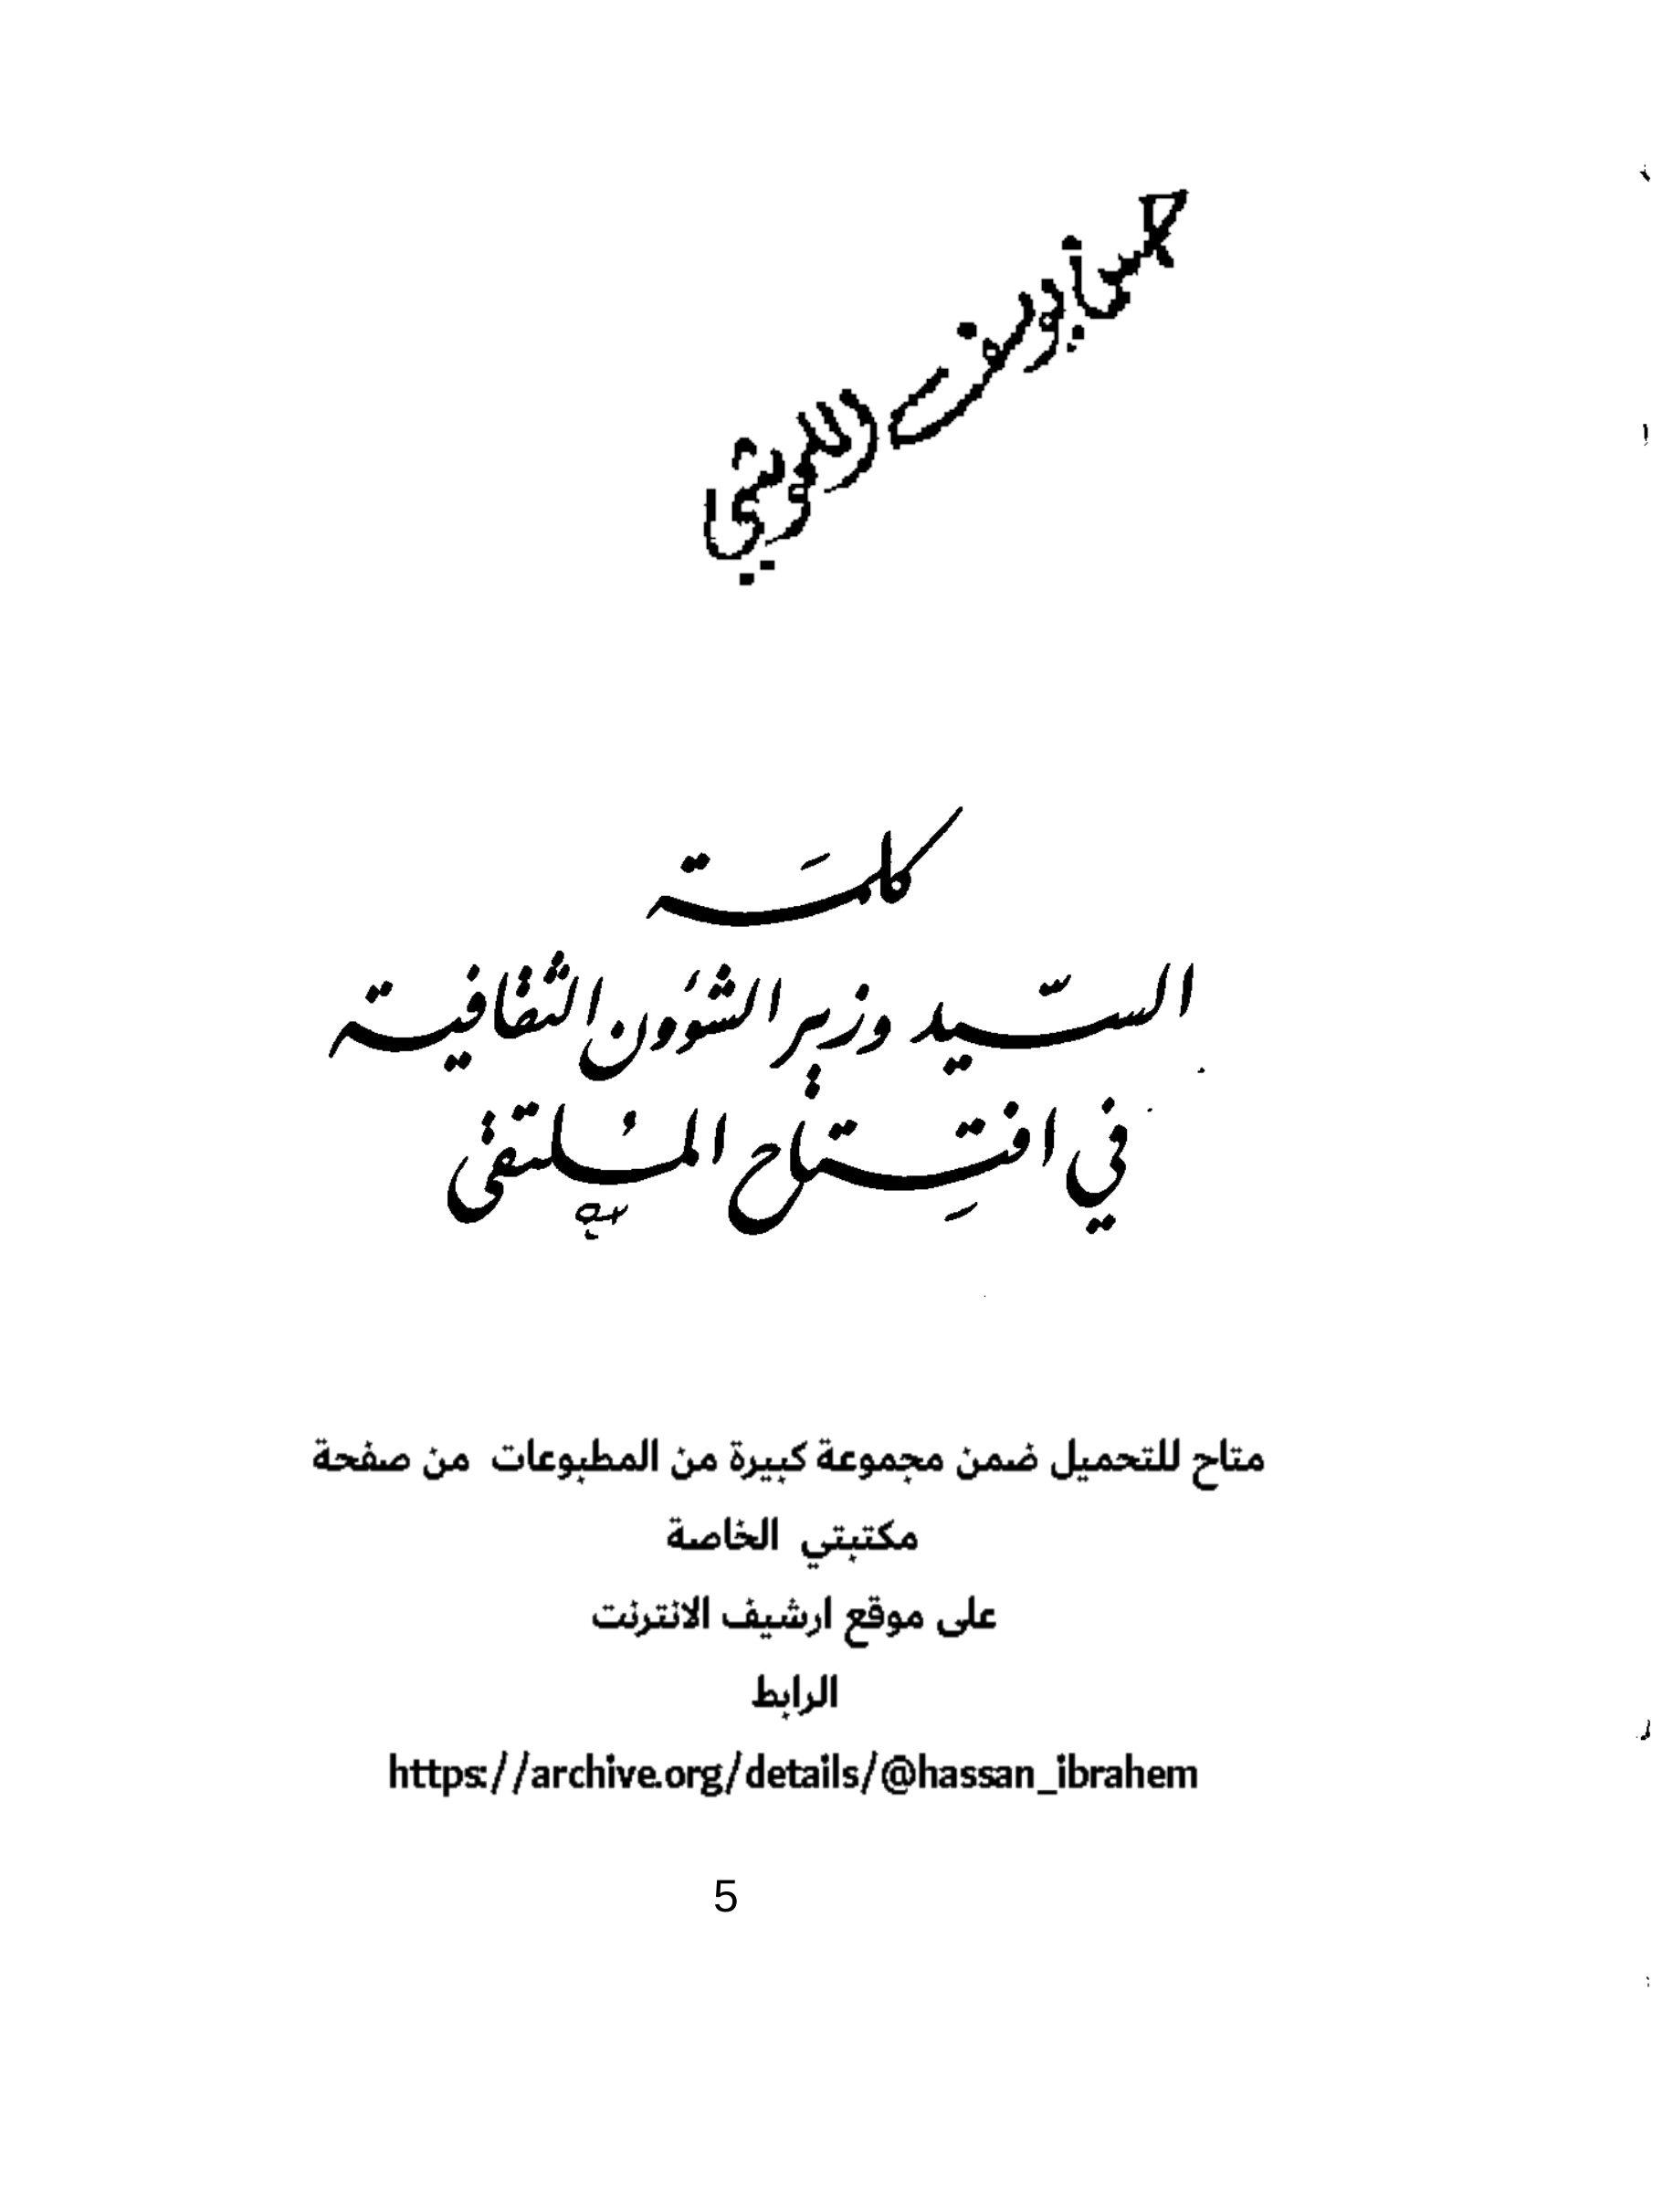 كلمَة
السّيد وزير الشؤون الثقافية
في افتِتاح المُلتقى
متاح للتحميل ضمن مجموعة كبيرة من المطبوعات من صفحة
مكتبتي الخاصة
على موقع ارشيف الانترنت
الرابط
https://archive.org/details/@hassan_ibrahem
5